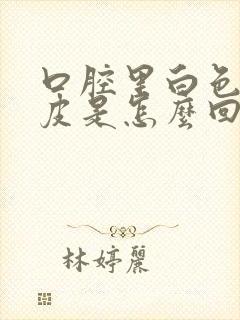 口腔里白色
皮是怎麼回
林婷麗